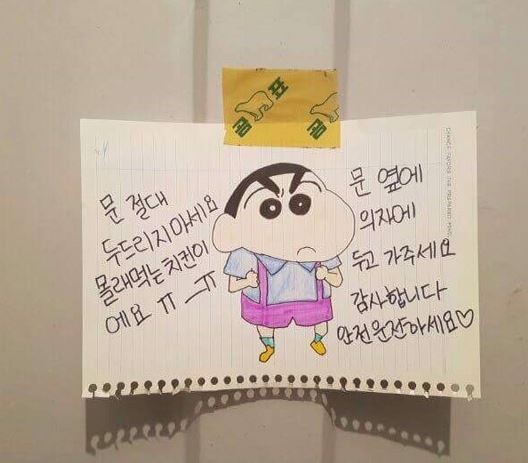 표
곰
곰
문 절대
두드리지마세요
몰래먹는치킨이
에요 ㅠ_ㅠ
문 옆에
의자에
두고 가주세요
감사합니다
안전운전하세요♡